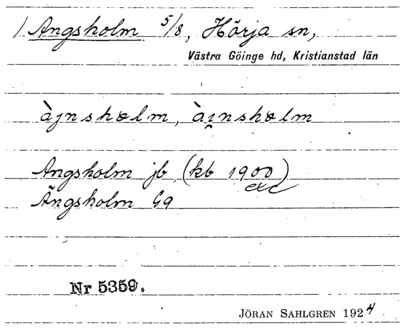 1) Angsholm 5/8, Hörja sn,
Västra Göinge hd, Kristianstad län
àjnshɷlm, àjnshɷlm
Angsholm jb (kb 1900)
Ängsholm G9
Nr 5359.
JÖRAN SAHLGREN 1924